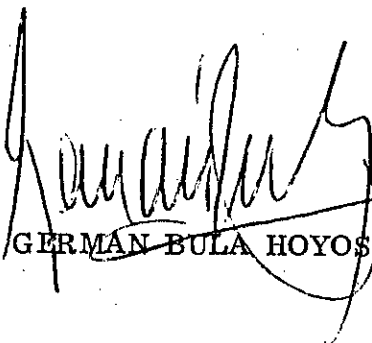 GERMAN BULA HOYOS